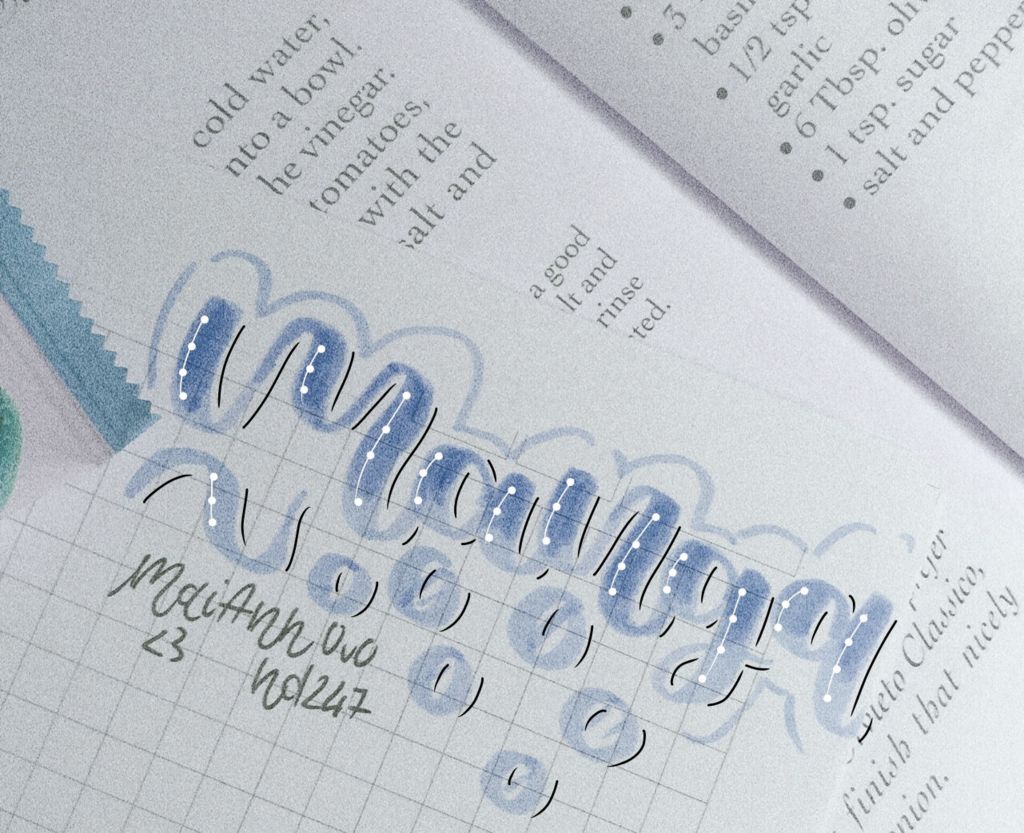 cold water,
nto a bowl.
he vinegar.
tomatoes,
with the
salt and
a good
lt and
rinse
ted.
• 3
basi
• 1/2 tsp
garlic
• 6 Tbsp. oliv
• 1 tsp. sugar
• salt and pepper
Manga
MaiAnh OvO
<3
hd1247
yer
Classico,
finish that nicely
nion.